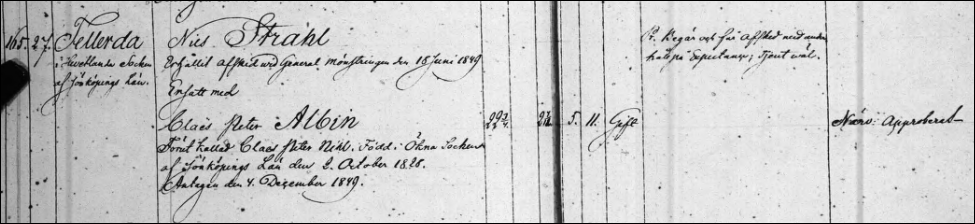 165. 27. Tellerda
i Hvetlanda Socken
af Jönköpings Län.
Nils Strahl
Erhållit Afsked vid General Mönstringen den 15 Juni 1849
Ersatt med
Claës Peter Albin
Förut kallad Claes Peter Nihl. Född i Ökna Socken
af Jönköpings Län den 2 October 1825.
Antagen den 4. December 1849.
22 2/4.
5. 11. Gift
Pr. Begär och får Afsked med under-
Expectancer; tjent wäl.
Närv: Approberat